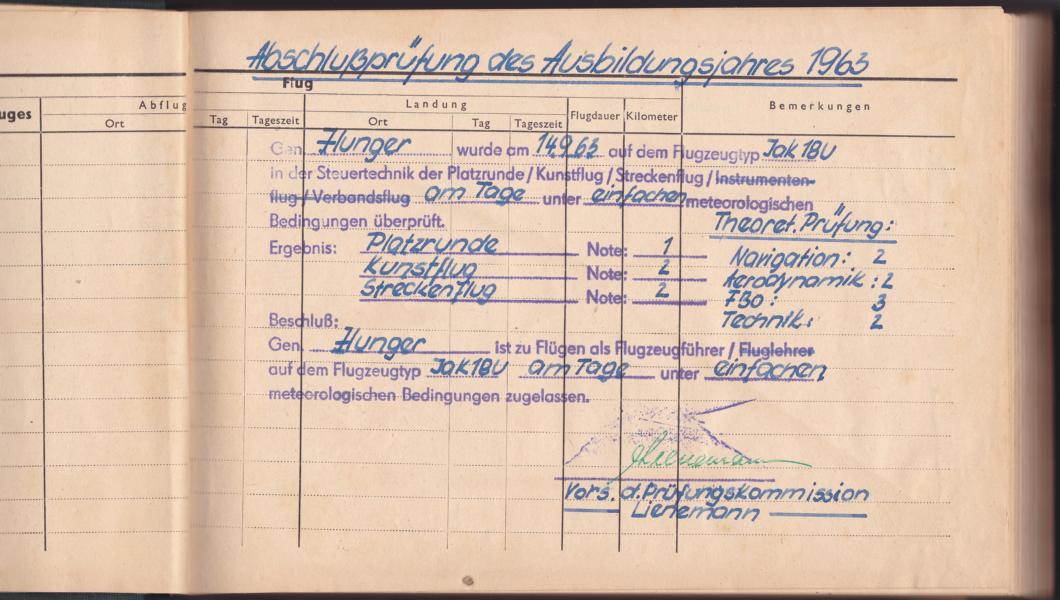 Abschlußprüfung des Ausbildungsjahres 1963
Flug
uges
Abflug
Ort
Landung
Bemerkungen
Tag Tageszeit Ort Tag Tageszeit Flugdauer Kilometer
Gen. Hunger wurde am 14.9.63 auf dem Flugzeugtyp Jak 18U
in der Steuertechnik der Platzrunde / Kunstflug / Streckenflug / Instrumenten-
flug / Verbandsflug am Tage unter einfachen meteorologischen
Bedingungen überprüft.
Theoret. Prüfung:
Ergebnis: Platzrunde Note: 1 Navigation: 2
Kunstflug Note: 2 Aerodynamik: 2
Streckenflug Note: 2 FBO: 3
Technik: 2
Beschluß:
Gen. Hunger ist zu Flügen als Flugzeugführer / Fluglehrer
auf dem Flugzeugtyp Jak 18U am Tage unter einfachen
meteorologischen Bedingungen zugelassen.
Lienemann
Vors. d. Prüfungskommission
Lienemann